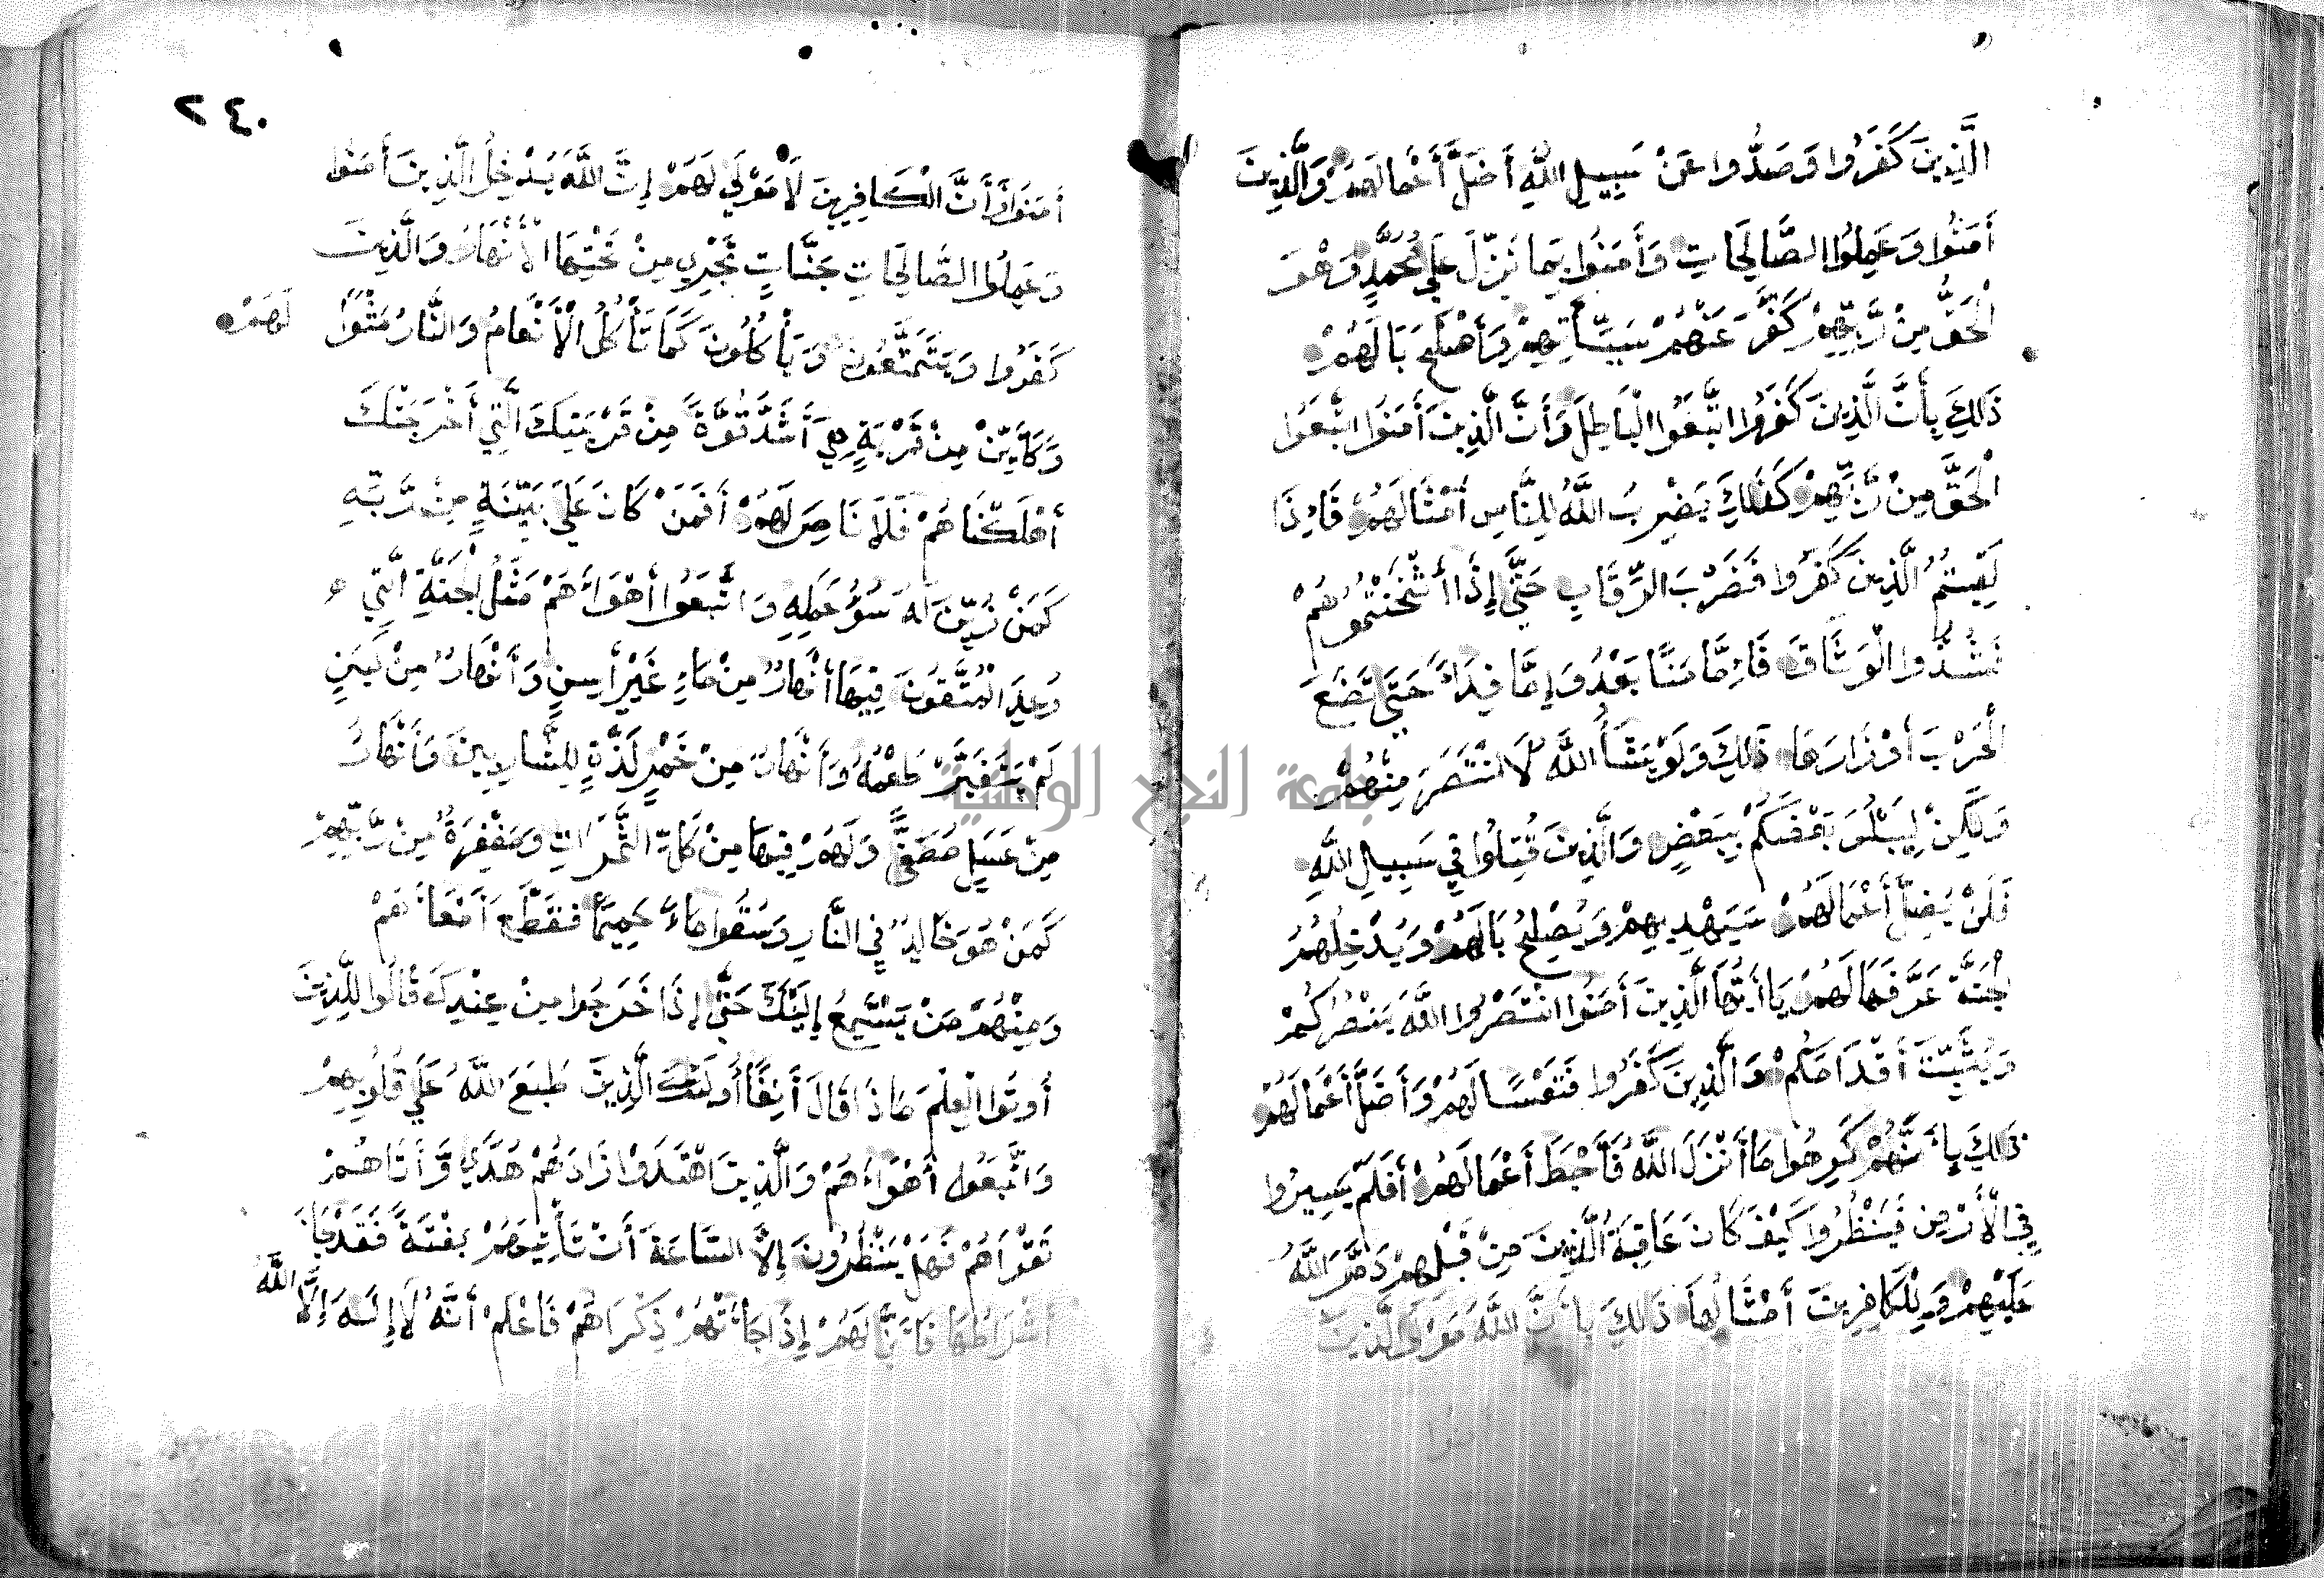 الَّذِينَ كَفَرُوا وَصَدُّوا عَنْ سَبِيلِ اللَّهِ أَضَلَّ أَعْمَالَهُمْ وَالَّذِينَ
أَمَنُوا وَعَمِلُوا الصَّالِحَاتِ وَأَمَنُوا بِمَا نُزِّلَ عَلَي مُحَمَّدٍ وَهُوَ
الْحَقُّ مِنْ رَّبِّهِمْ كَفَّرَ عَنْهُمْ سَيِّأَتِهِمْ وَأَصْلَحَ بَالَهُمْ
ذَلِكَ بِأَنَّ الَّذِينَ كَفَرُوا اتَّبَعُوا الْبَاطِلَ وَأَنَّ الَّذِينَ أَمَنُوا اتَّبَعُوا
الْحَقَّ مِنْ رَّبِّهِمْ كَذَلِكَ يَضْرِبُ اللَّهُ لِلنَّاسِ أَمْثَالَهُمْ فَإِذَا
لَقِيتُمُ الَّذِينَ كَفَرُوا فَضَرْبَ الرِّقَابِ حَتَّي إِذَا أَثْخَنْتُمُوهُمْ
فَشُدُّوا الْوَثَاقَ فَإِمَّا مَنًّا بَعْدُ وَإِمَّا فِدَاءً حَتَّي تَضَعَ
الْحَرْبَ أَوْزَارَهَا ذَلِكَ وَلَوْ يَشَأُ اللَّهُ لَانْتَصَرَ مِنْهُمْ
وَلَكِنْ لِيَبْلُوَ بَعْضَكُمْ بِبَعْضٍ وَالَّذِينَ قُتِلُوا فِي سَبِيلِ اللَّهِ
فَلَنْ يُضِلَّ أَعْمَالَهُمْ سَيَهْدِيهِمْ وَيُصْلِحُ بَالَهُمْ وَيُدْخِلُهُمُ
الْجَنَّةَ عَرَّفَهَا لَهُمْ يَا أَيُّهَا الَّذِينَ أَمَنُوا انْتَصُرُوا اللَّهَ يَنْصُرْكُمْ
وَيُثَبِّتْ أَقْدَامَكُمْ وَالَّذِينَ كَفَرُوا فَتَعْسًا لَهُمْ وَأَضَلَّ أَعْمَالَهُمْ
ذَلِكَ بِأَنَّهُمْ كَرِهُوا مَا أَنْزَلَ اللَّهُ فَأَحْبَطَ أَعْمَالَهُمْ أَفَلَمْ يَسِيرُوا
فِي الْأَرْضِ فَيَنْظُرُوا كَيْفَ كَانَ عَاقِبَةُ الَّذِينَ مِنْ قَبْلِهِمْ دَمَّرَ اللَّهُ
عَلَيْهِمْ وَلِلْكَافِرِينَ أَمْثَالُهَا ذَلِكَ بِأَنَّ اللَّهَ مَوْلَي الَّذِينَ
٢٤٠
أَمَنُوا وَأَنَّ الْكَافِرِينَ لَا مَوْلَي لَهُمْ إِنَّ اللَّهَ يُدْخِلُ الَّذِينَ أَمَنُوا
وَعَمِلُوا الصَّالِحَاتِ جَنَّاتٍ تَجْرِي مِنْ تَحْتِهَا الْأَنْهَارُ وَالَّذِينَ
كَفَرُوا وَيَتَمَتَّعُونَ وَيَأْكُلُونَ كَمَا تَأْكُلُ الْأَنْعَامُ وَالنَّارُ مَثْوًا لَهُمْ
وَكَأَيِّنْ مِنْ قَرْيَةٍ هِيَ أَشَدُّ قُوَّةً مِنْ قَرْيَتِكَ الَّتِي أَخْرَجَتْكَ
أَهْلَكْنَاهُمْ فَلَا نَاصِرَ لَهُمْ أَفَمَنْ كَانَ عَلَي بَيِّنَةٍ مِنْ رَّبِّهِ
كَمَنْ زُيِّنَ لَهُ سُوُءُ عَمَلِهِ وَاتَّبَعُوا أَهْوَاءَهُمْ مَثَلُ الْجَنَّةِ الَّتِي
وُعِدَ الْمُتَّقُونَ فِيهَا أَنْهَارٌ مِنْ مَاءٍ غَيْرِ أَسِنٍ وَأَنْهَارٌ مِنْ لَبَنٍ
لَمْ يَتَغَيَّرْ طَعْمُهُ وَأَنْهَارٌ مِنْ خَمْرٍ لَذَّةٍ لِلشَّارِبِينَ وَأَنْهَارٌ
مِنْ عَسَلٍ مُصَفًّي وَلَهُمْ فِيهَا مِنْ كُلِّ الثَّمَرَاتِ وَمَغْفِرَةٌ مِنْ رَّبِّهِمْ
كَمَنْ هُوَ خَالِدٌ فِي النَّارِ وَسُقُوا مَاءً حَمِيمًا فَقَطَّعَ أَمْعَاءَهُمْ
وَمِنْهُمْ مَنْ يَسْتَمِعُ إِلَيْكَ حَتَّي إِذَا خَرَجُوا مِنْ عِنْدِكَ قَالُوا لِلَّذِينَ
أُوتُوا الْعِلْمَ مَاذَا قَالَ أَنِفًا أُولَئِكَ الَّذِينَ طَبَعَ اللَّهُ عَلَي قُلُوبِهِمْ
وَاتَّبَعُوا أَهْوَاءَهُمْ وَالَّذِينَ اهْتَدَوْا زَادَهُمْ هُدًي وَّأَتَاهُمْ
تَقْوَاهُمْ فَهَلْ يَنْظُرُونَ إِلَّا السَّاعَةَ أَنْ تَأْتِيَهُمْ بَغْتَةً فَقَدْ جَاءَ
أَشْرَاطُهَا فَأَنَّي لَهُمْ إِذَا جَاءَتْهُمْ ذِكْرَاهُمْ فَاعْلَمْ أَنَّهُ لَا إِلَهَ إِلَّا اللَّهُ
جامعة النجاح الوطنية